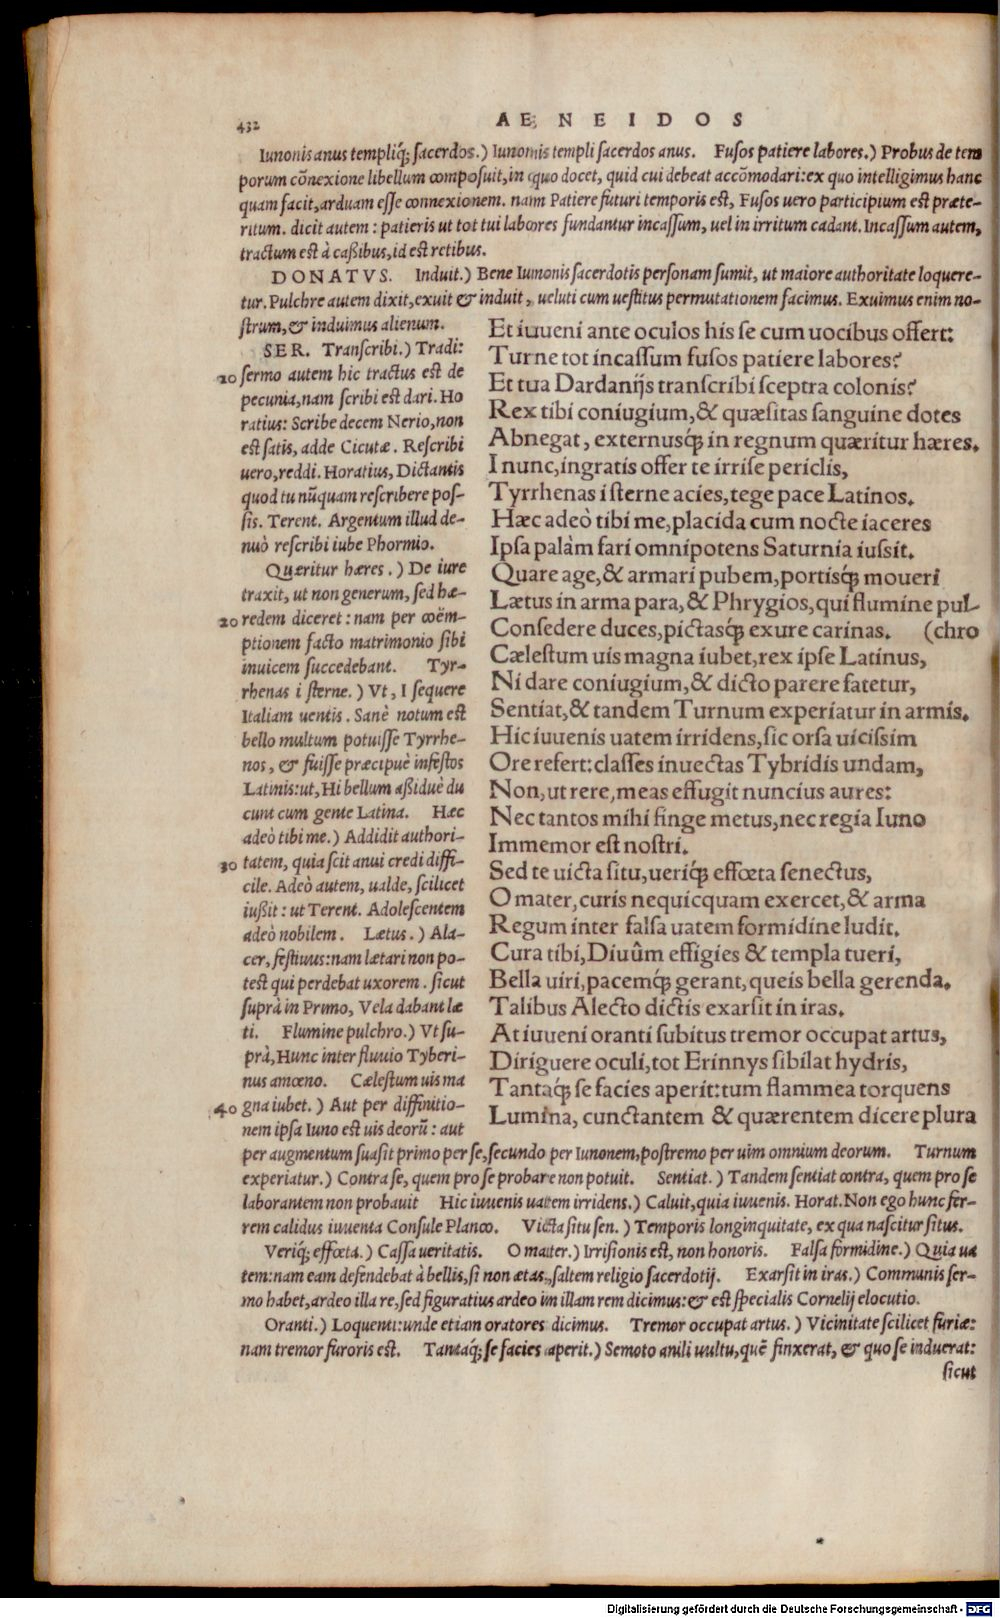 432
AENEIDOS
Iunonis anus templiq́; sacerdos.) Iunonis templi sacerdos anus. Fusos patiere labores.) Probus de tem
porum cōnexione libellum composuit, in quo docet, quid cui debeat accōmodari: ex quo intelligimus hanc
quam facit, arduam esse connexionem. nam Patiere futuri temporis est, Fusos uero participium est præte-
ritum. dicit autem: patieris ut tot tui labores fundantur incassum, uel in irritum cadant. Incassum autem,
tractum est à caßibus, id est retibus.
DONATVS. Induit.) Bene Iunonis sacerdotis personam sumit, ut maiore authoritate loquere-
tur. Pulchre autem dixit, exuit & induit, ueluti cum uestitus permutationem facimus. Exuimus enim no-
strum, & induimus alienum.
SER. Transcribi.) Tradi:
10 sermo autem hic tractus est de
pecunia, nam scribi est dari. Ho
ratius: Scribe decem Nerio, non
est satis, adde Cicutæ. Rescribi
uero, reddi. Horatius, Dictantis
quod tu nūquam rescribere pos-
sis. Terent. Argentum illud de-
nuò rescribi iube Phormio.
Quæritur hæres.) De iure
traxit, ut non generum, sed hæ-
20 redem diceret: nam per coëm-
ptionem facto matrimonio sibi
inuicem succedebant. Tyr-
rhenas i sterne.) Vt, I sequere
Italiam uentis. Sanè notum est
bello multum potuisse Tyrrhe-
nos, & fuisse præcipuè infestos
Latinis: ut, Hi bellum aßiduè du
cunt cum gente Latina. Hæc
adeò tibi me.) Addidit authori-
30 tatem, quia scit anui credi diffi-
cile. Adeò autem, ualde, scilicet
iußit: ut Terent. Adolescentem
adeò nobilem. Lætus.) Ala-
cer, festiuus: nam lætari non po-
test qui perdebat uxorem. sicut
suprà in Primo, Vela dabant læ
ti. Flumine pulchro.) Vt su-
prà, Hunc inter fluuio Tyberi-
nus amœno. Cælestum uis ma
40 gna iubet.) Aut per diffinitio-
nem ipsa Iuno est uis deorū: aut
Et iuueni ante oculos his se cum uocibus offert:
Turne tot incassum fusos patiere labores?
Et tua Dardanijs transcribi sceptra colonis?
Rex tibi coniugium, & quæsitas sanguine dotes
Abnegat, externusq́; in regnum quæritur hæres.
I nunc, ingratis offer te irrise periclis,
Tyrrhenas i sterne acies, tege pace Latinos.
Hæc adeò tibi me, placida cum nocte iaceres
Ipsa palàm fari omnipotens Saturnia iussit.
Quare age, & armari pubem, portisq́; moueri
Lætus in arma para, & Phrygios, qui flumine pul-
Consedere duces, pictasq́; exure carinas. (chro
Cælestum uis magna iubet, rex ipse Latinus,
Ni dare coniugium, & dicto parere fatetur,
Sentiat, & tandem Turnum experiatur in armis.
Hic iuuenis uatem irridens, sic orsa uicissim
Ore refert: classes inuectas Tybridis undam,
Non, ut rere, meas effugit nuncius aures:
Nec tantos mihi finge metus, nec regia Iuno
Immemor est nostri.
Sed te uicta situ, ueriq́; effœta senectus,
O mater, curis nequicquam exercet, & arma
Regum inter falsa uatem formidine ludit.
Cura tibi, Diuûm effigies & templa tueri,
Bella uiri, pacemq́; gerant, queis bella gerenda.
Talibus Alecto dictis exarsit in iras.
At iuueni oranti subitus tremor occupat artus,
Diriguere oculi, tot Erinnys sibilat hydris,
Tantaq́; se facies aperit: tum flammea torquens
Lumina, cunctantem & quærentem dicere plura
per augmentum suasit primo per se, secundo per Iunonem, postremo per uim omnium deorum. Turnum
experiatur.) Contra se, quem pro se probare non potuit. Sentiat.) Tandem sentiat contra, quem pro se
laborantem non probauit Hic iuuenis uatem irridens.) Caluit, quia iuuenis. Horat. Non ego hunc fer-
rem calidus iuuenta Consule Planco. Victa situ sen.) Temporis longinquitate, ex qua nascitur situs.
Veriq́; effœta.) Cassa ueritatis. O mater.) Irrisionis est, non honoris. Falsa formidine.) Quia ua
tem: nam eam defendebat à bellis, si non ætas, saltem religio sacerdotij. Exarsit in iras.) Communis ser-
mo habet, ardeo illa re, sed figuratius ardeo in illam rem dicimus: & est specialis Cornelij elocutio.
Oranti.) Loquenti: unde etiam oratores dicimus. Tremor occupat artus.) Vicinitate scilicet furiæ:
nam tremor furoris est. Tantaq́; se facies aperit.) Semoto anili uultu, quē finxerat, & quo se induerat:
sicut
Digitalisierung gefördert durch die Deutsche Forschungsgemeinschaft - DFG